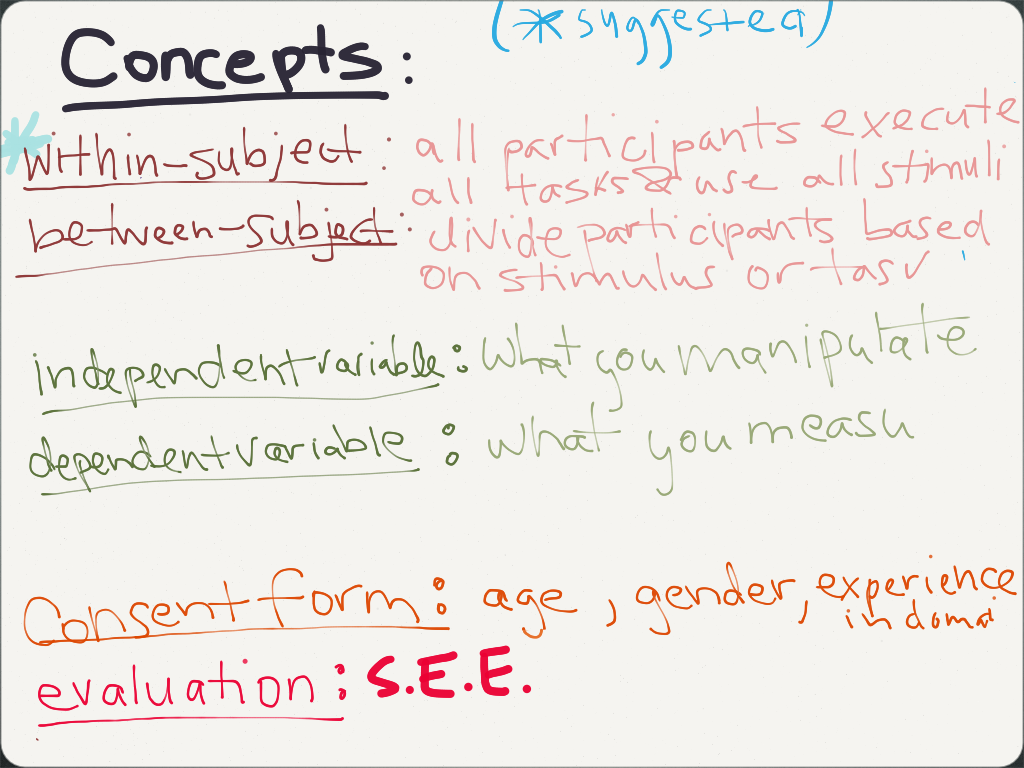 (* suggested)
Concepts:
* within-subject : all participants execute
all tasks & use all stimuli
between-subject : divide participants based
on stimulus or task
independent variable : what you manipulate
dependent variable : what you measu
Consent form : age , gender, experience
in domai
evaluation : S.E.E.